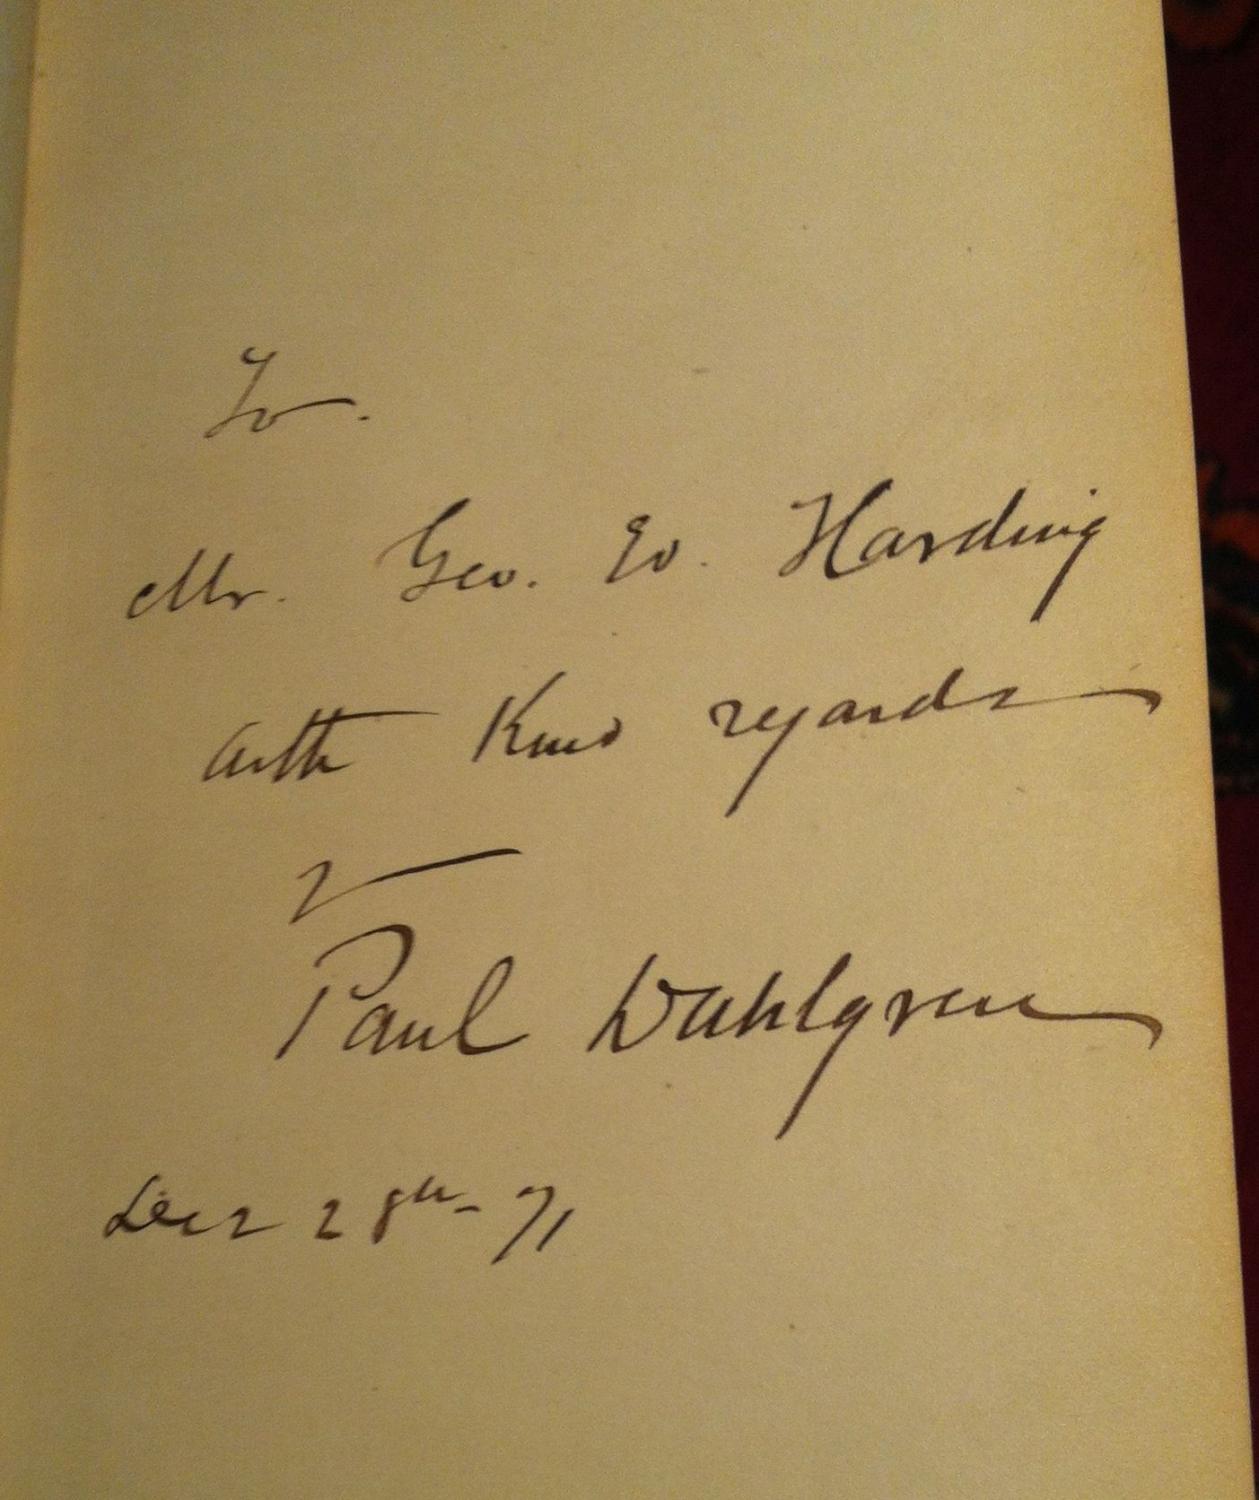 To.
Mr. Geo. W. Harding
with Kind regards
Paul Dahlgren
Dec 28th - 71